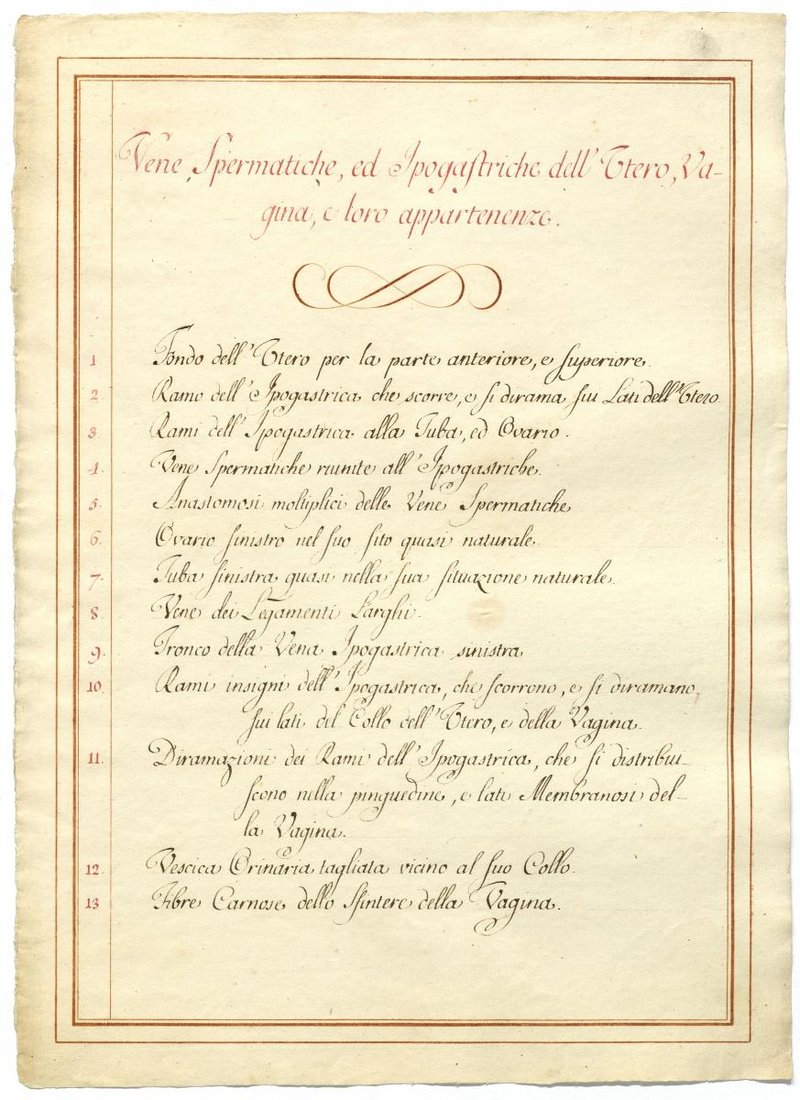 Vene Spermatiche, ed Ipogastriche dell'Utero, Va-
gina, e loro appartenenze.
1 Fondo dell'Utero per la parte anteriore, e superiore.
2 Ramo dell'Ipogastrica che scorre, e si dirama sui Lati dell'Utero
3 Rami dell'Ipogastrica alla Tuba, ed Ovario.
4 Vene Spermatiche riunite all'Ipogastriche.
5 Anastomosi moltiplici delle Vene Spermatiche
6 Ovario sinistro nel suo sito quasi naturale.
7 Tuba sinistra quasi nella sua situazione naturale.
8 Vene dei Legamenti Larghi.
9 Tronco della Vena Ipogastrica sinistra
10 Rami insigni dell'Ipogastrica, che scorrono, e si diramano
sui lati del Collo dell'Utero, e della Vagina.
11 Diramazioni dei Rami dell'Ipogastrica, che si distribui-
scono nella pinguedine, e lati Membranosi del-
la Vagina.
12 Vescica Orinaria tagliata vicino al suo Collo.
13 Fibre Carnose dello Sfintere della Vagina.